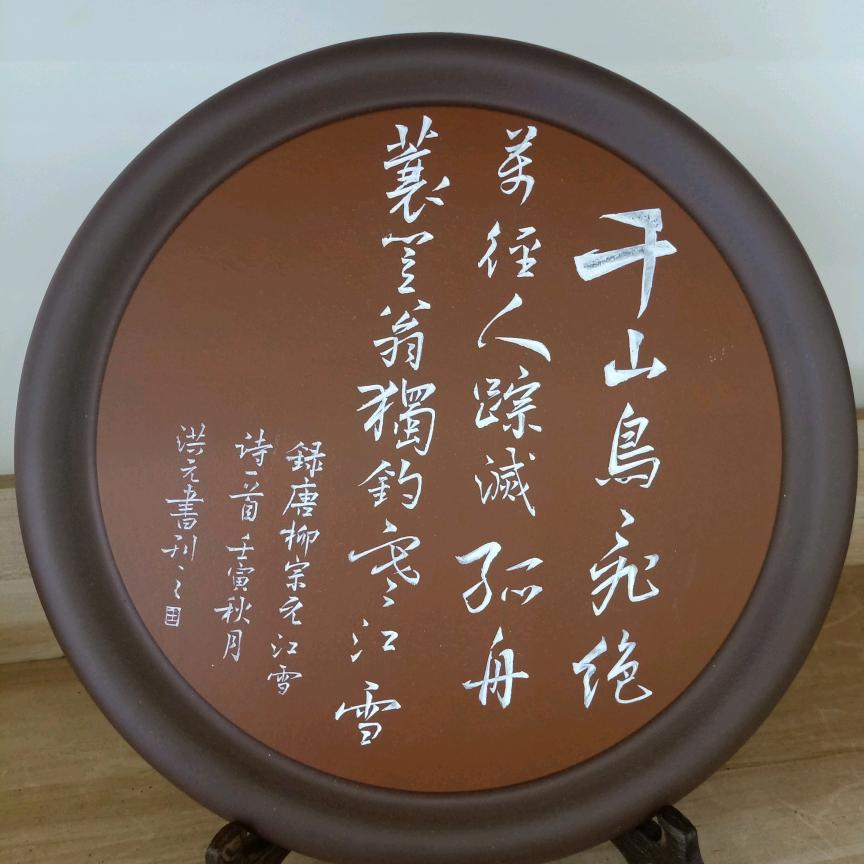 千山鳥飛絶
萬徑人踪滅孤舟
蓑笠翁獨釣寒江雪
録唐柳宗元江雪
诗一首壬寅秋月
洪元書刊之